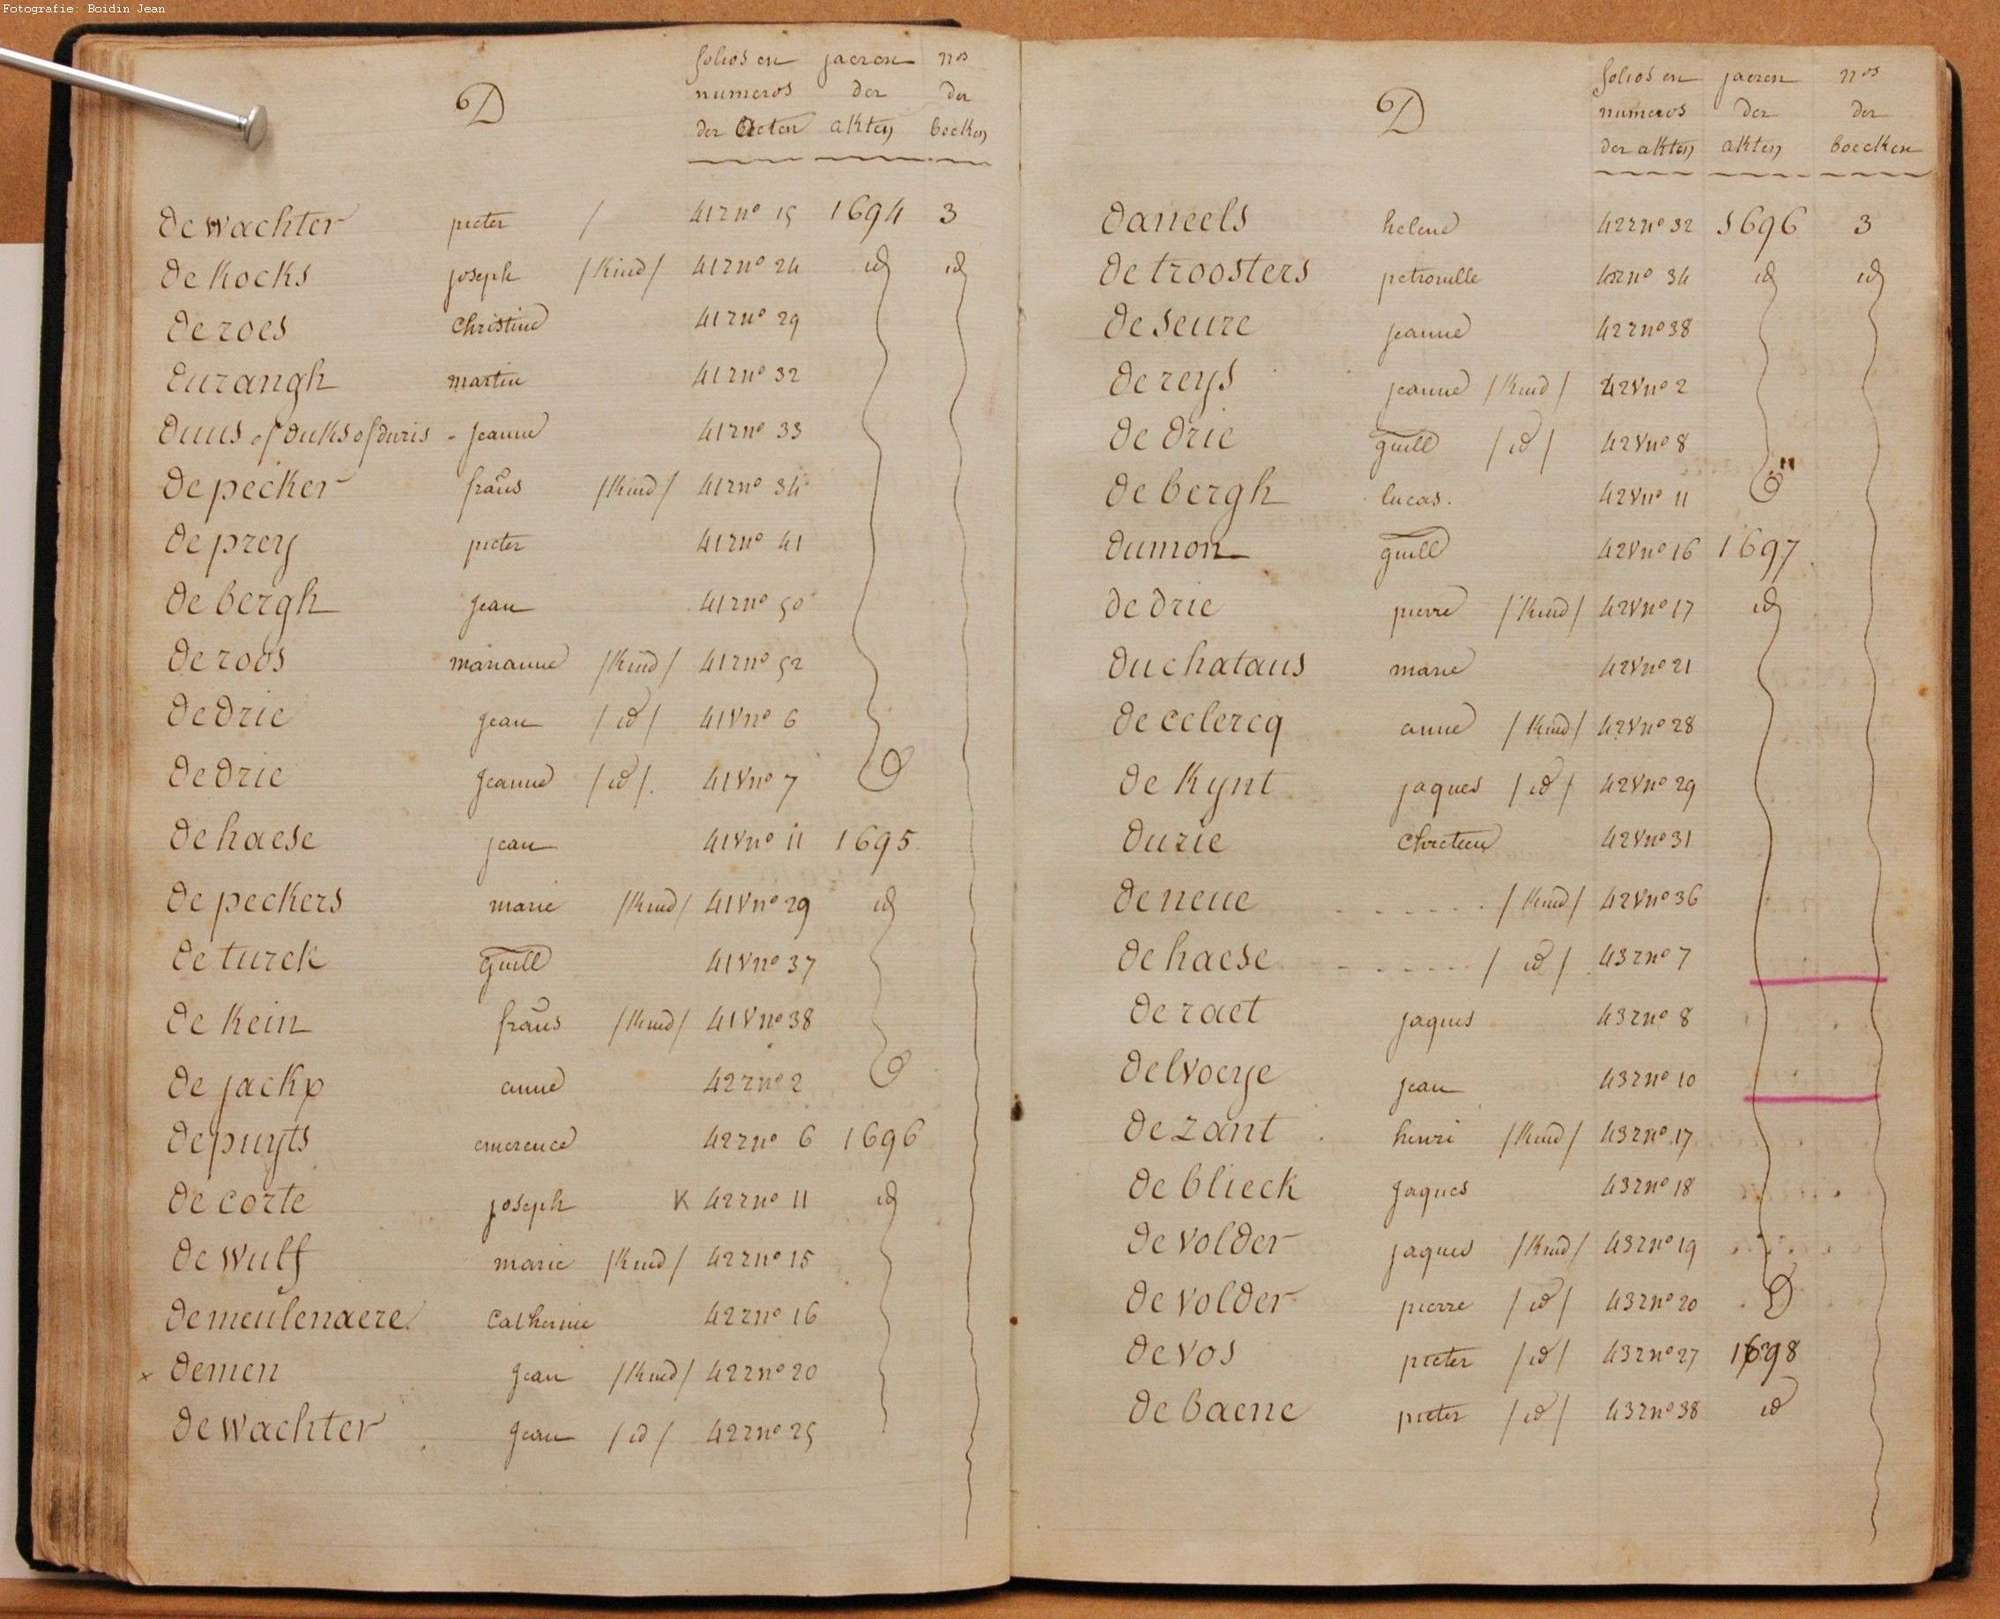 Fotografie: Boidin Jean
D
folios en jaeren nos
numeros der der
der Acten akten boecken
de wachter pieter / 41 r no 15 1694 3
de Kocks joseph /Kind/ 41 r no 24 id id
de roes Christine 41 r no 29
durangh martin 41 r no 32
duus of duks of duris - jeanne 41 r no 33
de pecker frans /Kind/ 41 r no 34
de prey pieter 41 r no 41
de bergh jean 41 r no 50
de roos marianne /Kind/ 41 r no 52
de drie jean /id/ 41 v no 6
de drie jeanne /id/ 41 v no 7
de haese jean 41 v no 11 1695
de peckers marie /Kind/ 41 v no 29 id
de turck guill 41 v no 37
de Kein frans /Kind/ 41 v no 38
de jackx anne 42 r no 2
de puyts emerence 42 r no 6 1696
de corte joseph K 42 r no 11 id
de wulf marie /Kind/ 42 r no 15
de meulenaere Catherine 42 r no 16
x demen jean /Kind/ 42 r no 20
de wachter jean /id/ 42 r no 25
D
folios en jaeren nos
numeros der der
der akten akten boecken
daneels helene 42 r no 32 1696 3
de troosters petronille 42 r no 34 id id
de seure jeanne 42 r no 38
de reys jeanne /Kind/ 42 v no 2
de drie guill /id/ 42 v no 8
de bergh lucas. 42 v no 11
dumon guill 42 v no 16 1697
de drie pierre /Kind/ 42 v no 17 id
duchataus marie 42 v no 21
de celercq anne /Kind/ 42 v no 28
de Kynt jaques /id/ 42 v no 29
durie Chretien 42 v no 31
de neue - - - - - - /Kind/ 42 v no 36
de haese - - - - - - / id / 43 r no 7
de raet jaques 43 r no 8
delvoeye jean 43 r no 10
de zant henri /Kind/ 43 r no 17
de blieck jaques 43 r no 18
de volder jaques /Kind/ 43 r no 19
de volder pierre /id/ 43 r no 20
de vos pieter /id/ 43 r no 27 1698
de baene pieter /id/ 43 r no 38 id